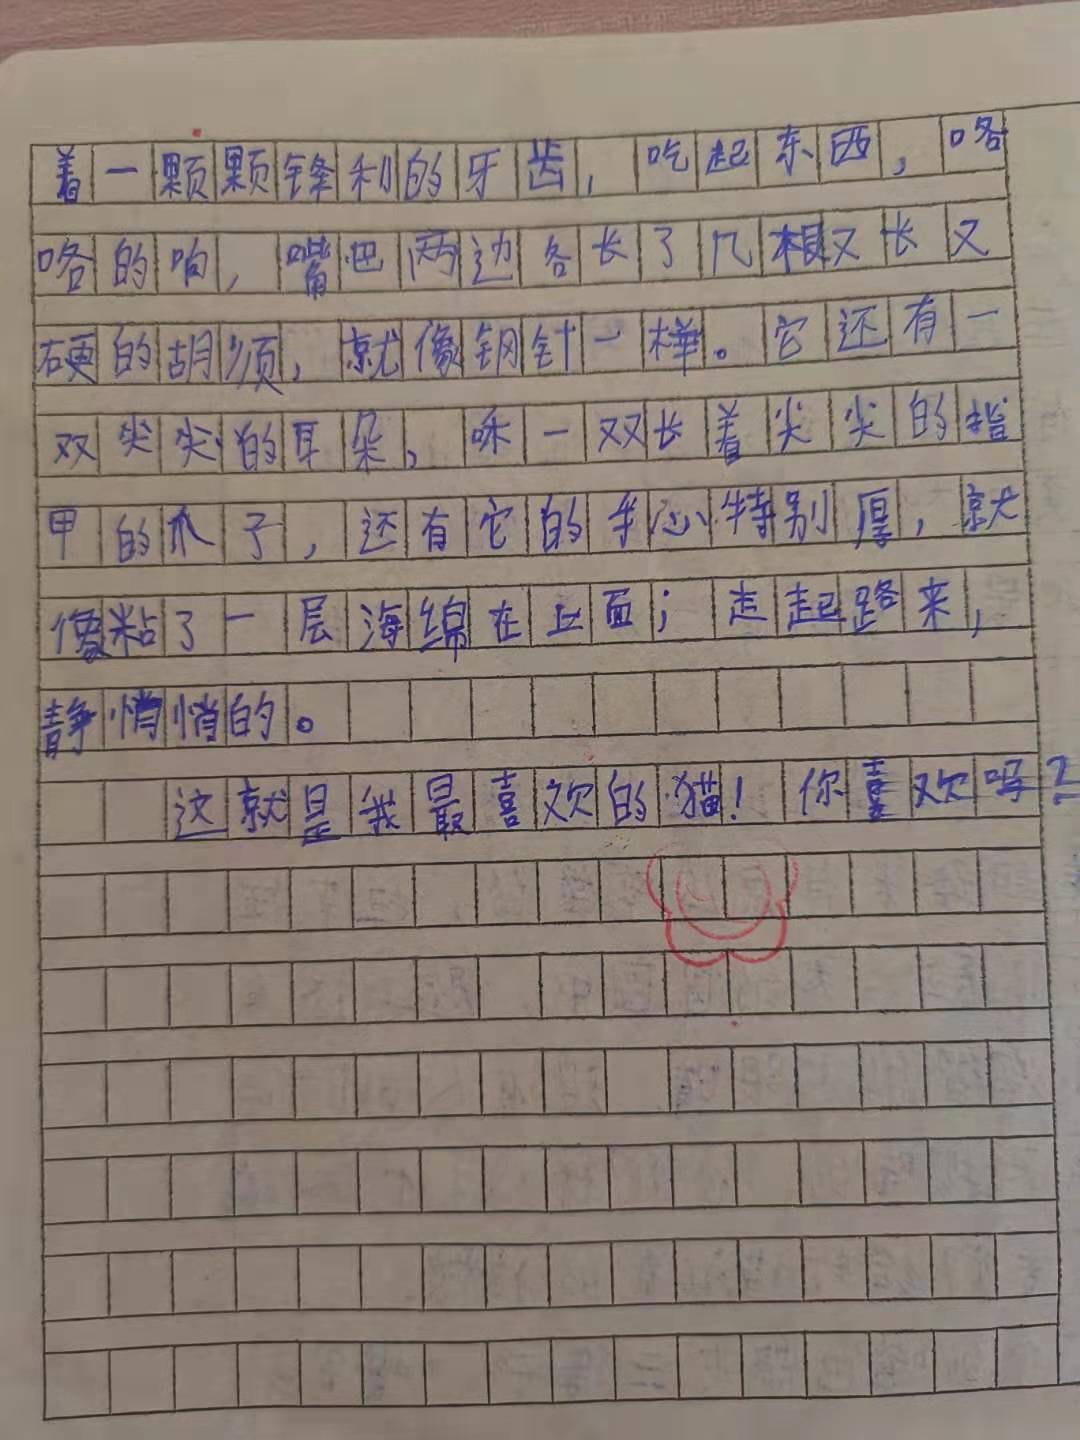 着一颗颗锋利的牙齿，吃起东西，咯
咯的响，嘴巴两边各长了几根又长又
硬的胡须，就像钢针一样。它还有一
双尖尖的耳朵，和一双长着尖尖的指
甲的爪子，还有它的手心特别厚，就
像粘了一层海绵在上面；走起路来，
静悄悄的。
这就是我最喜欢的猫！你喜欢吗？